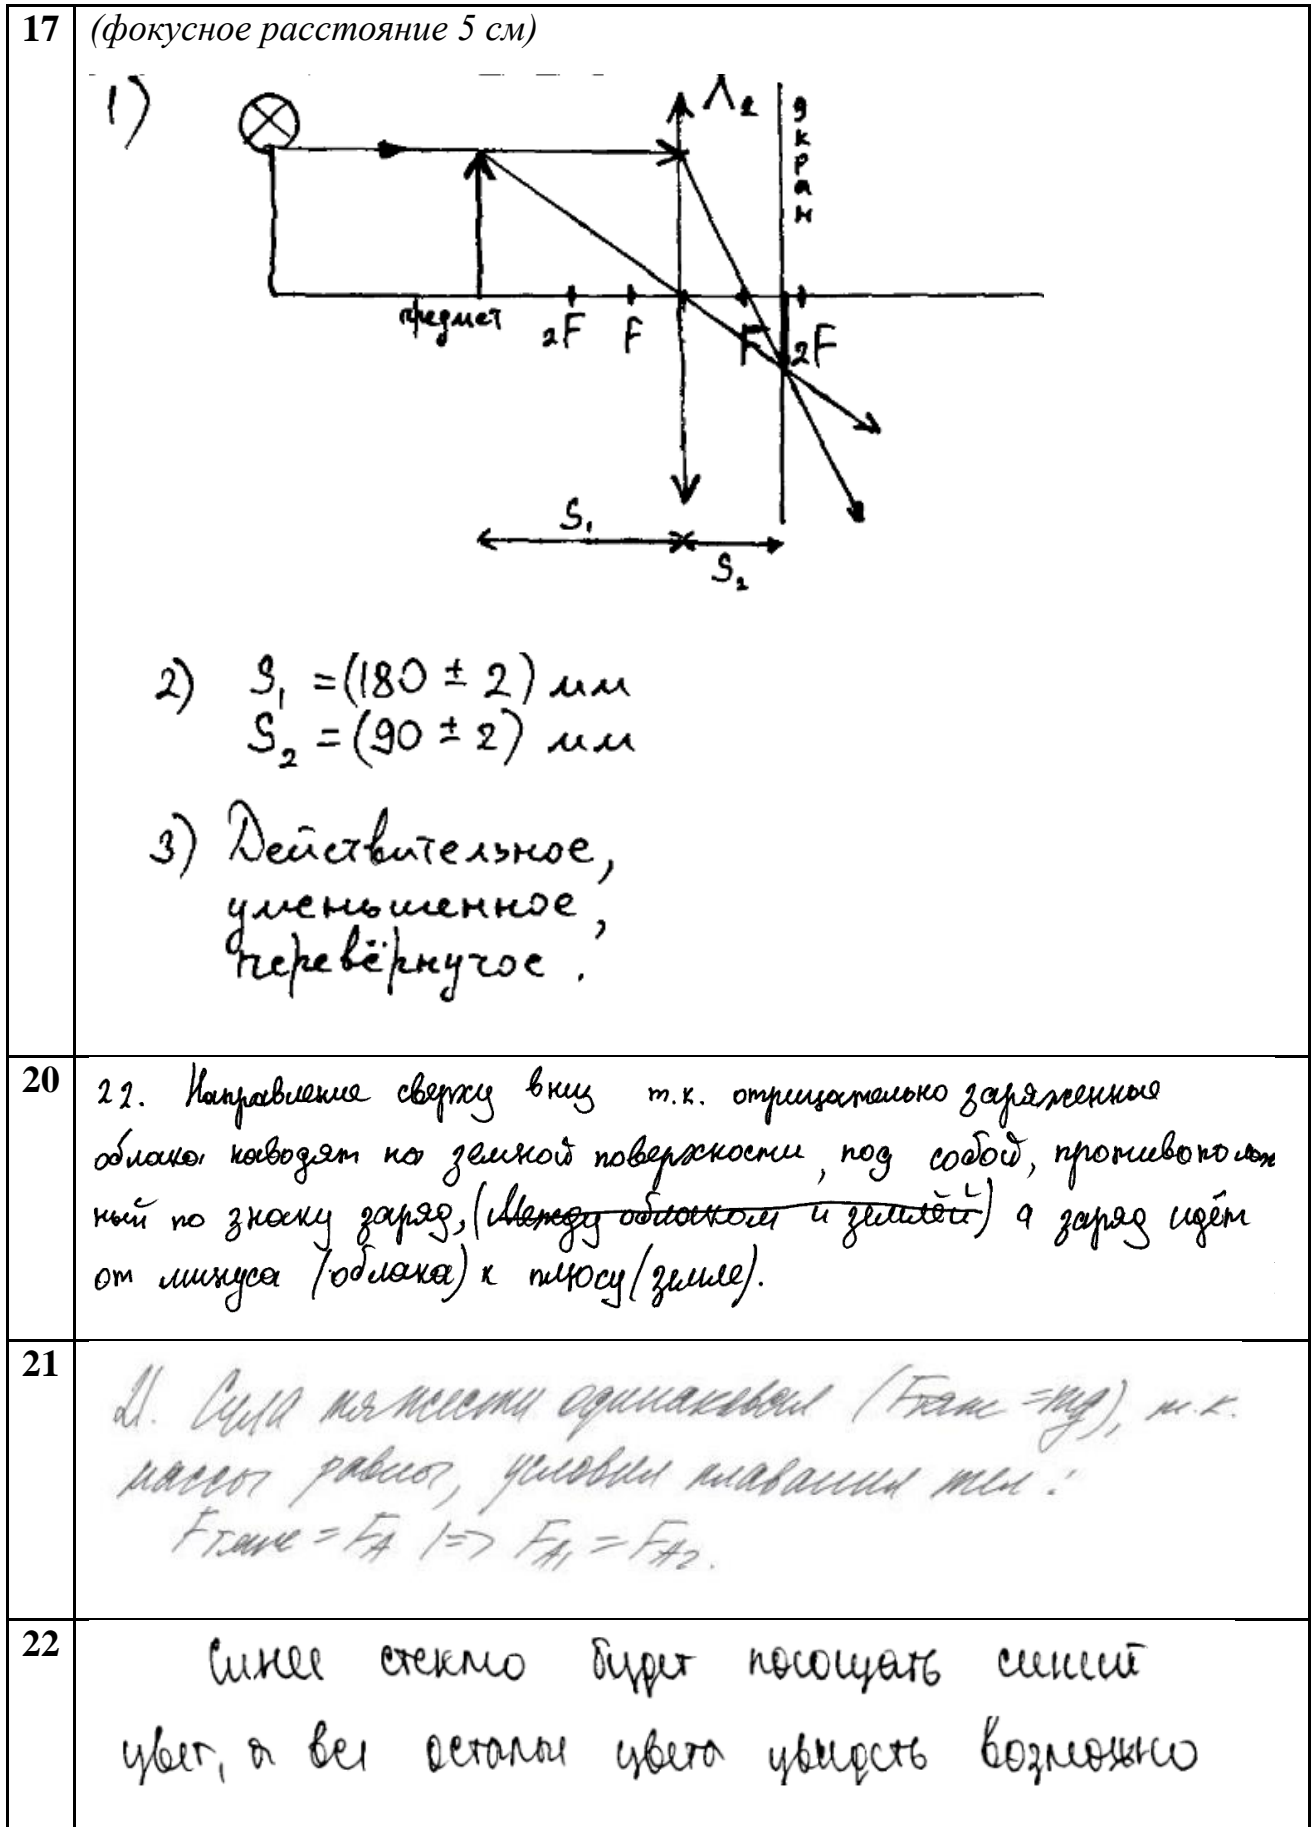 17 (фокусное расстояние 5 см)
1)
Л₂
экран
предмет
2F F F 2F
S₁
S₂
2) S₁ = (180 ± 2) мм
S₂ = (90 ± 2) мм
3) Действительное,
уменьшенное,
перевёрнутое.
20
22. Направление сверху вниз т.к. отрицательно заряженные
облака наводят на земной поверхности, под собой, противополож
ный по знаку заряд, (Между облаком и землёй) а заряд идёт
от минуса (облака) к плюсу (земле).
21
21. Сила тяжести одинаковая (Fтяж = mg), т.к.
массы равны, условия плавания тел:
Fтяж = FА |=> FА₁ = FА₂.
22
Синее стекло будет посощать синий
цвет, а все осталые цвета увидеть возможно